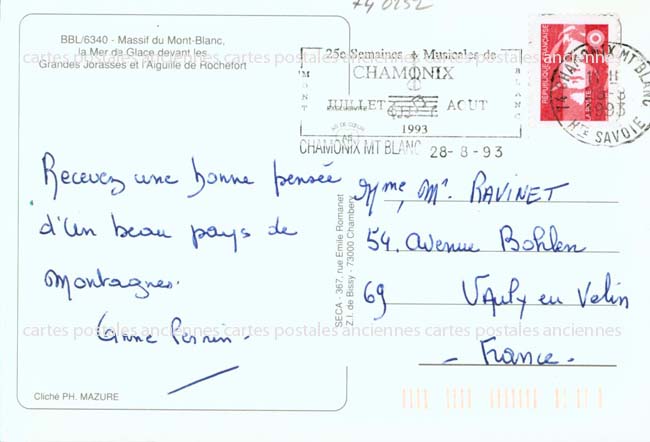 74 0252
BBL/6340 - Massif du Mont-Blanc,
la Mer de Glace devant les
Grandes Jorasses et l'Aiguille de Rochefort
25e Semaines Musicales de
CHAMONIX
MONT
BLANC
JUILLET AOUT
1993
CHAMONIX MT BLANC 28-8-93
RÉPUBLIQUE FRANÇAISE
LA POSTE
74 CHAMONIX MT BLANC
1993
HTE SAVOIE
Recevez une bonne pensée
d'un beau pays de
montagnes.
Anne Perrin.
Mme, Mr. RAVINET
54. avenue Bohlen
69 VAulx en Velin
- France -
SECA - 367, rue Emile Romanet
Z.I. de Bissy - 73000 Chambéry
Cliché PH. MAZURE
cartes postales anciennes cartes postales anciennes cartes postales anciennes
cartes postales anciennes cartes postales anciennes cartes postales anciennes
cartes postales anciennes cartes postales anciennes cartes postales anciennes